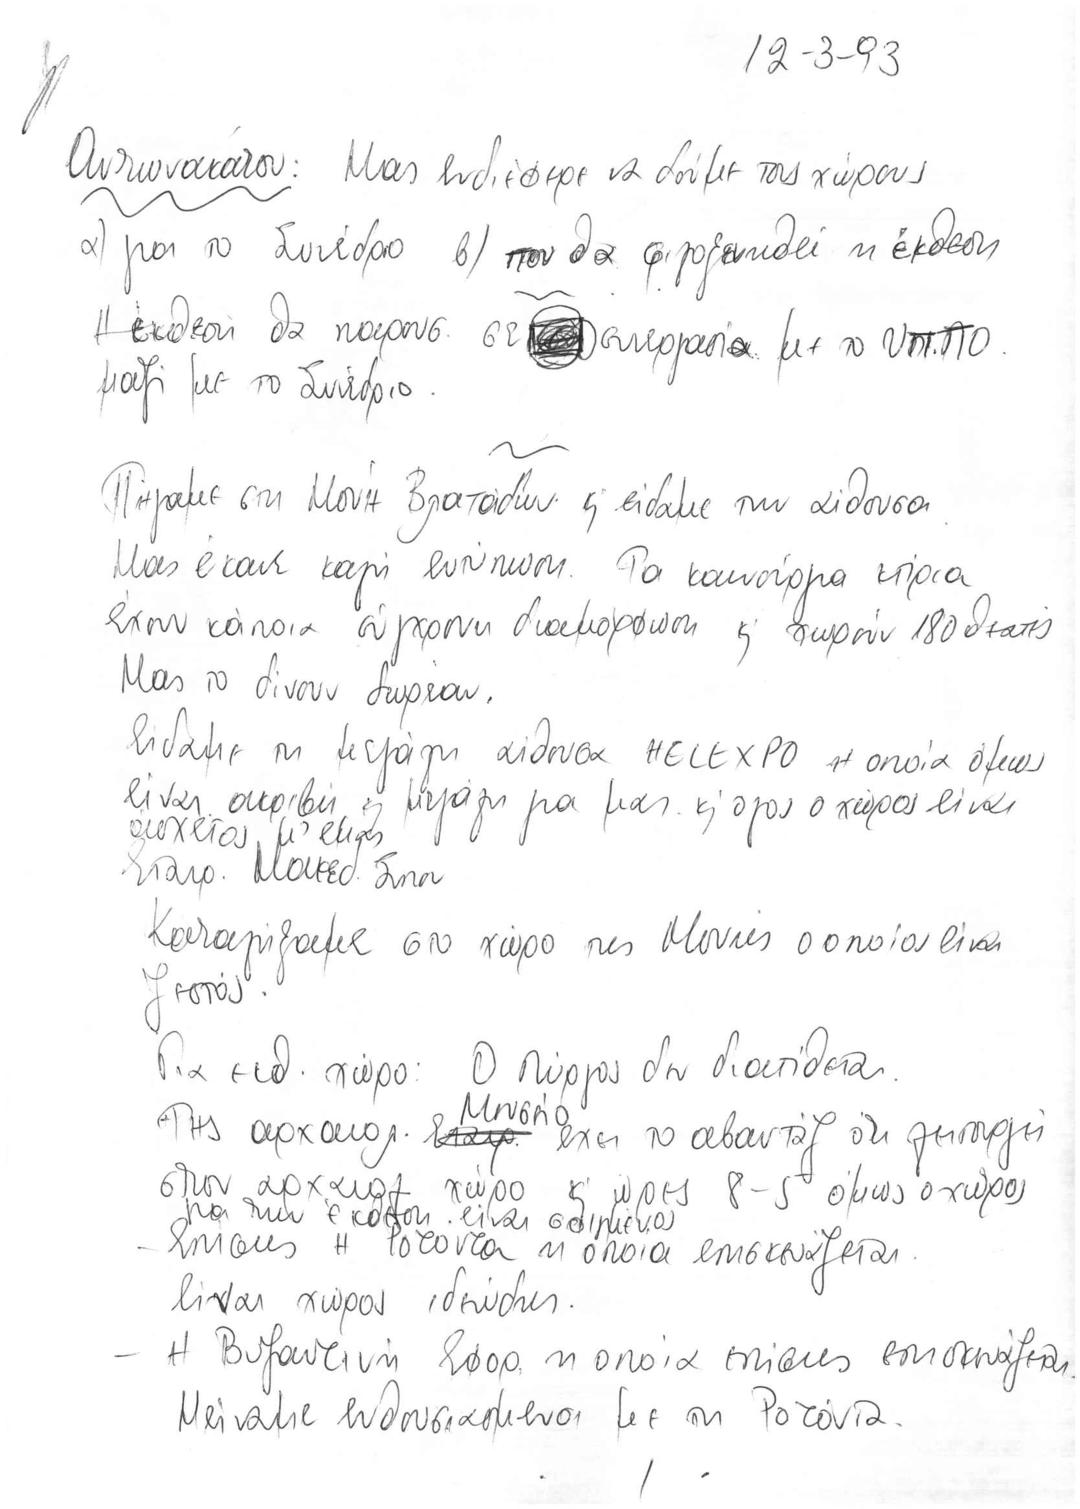 12-3-93
Αντωνακάτου: Μας ενδιέφερε να δούμε τους χώρους
α) για το Συνέδριο β) που θα φιλοξενηθεί η έκθεση
Η έκθεση θα παρουσ. σε συνεργασία με το ΥΠ.ΠΟ.
μαζί με το Συνέδριο.
Πήγαμε στη Μονή Βλατάδων ς' είδαμε την αίθουσα
Μας έκανε καλή εντύπωση. Τα καινούργια κτίρια
έχουν κάποια σύγχρονη διαμόρφωση ς' χωρούν 180 θεατές
Μας το δίνουν δωρεάν.
Είδαμε τη μεγάλη αίθουσα HELEXPO η οποία όμως
είναι ακριβή ς' μεγάλη για μας ς' όλος ο χώρος είναι
άσχετος μ' εμάς
Εταιρ. Μακεδ. Σπου
Καταλήξαμε στο χώρο της Μονής ο οποίος είναι
ζεστός.
Για εκθ. χώρο: Ο Πύργος δεν διατίθεται.
Μουσείο
Της αρχαιολ. Εταιρ. έχει το αβαντάζ ότι λειτουργεί
στον αρχαιολ χώρο ς' ώρες 8-5 όμως ο χώρος
για την έκθεση είναι
- Επίσης η Ροτόντα η οποία επισκευάζεται.
Είναι χώρος ιδεώδης.
- Η Βυζαντινή η οποία επίσης επισκευάζεται.
Μείναμε ενθουσιασμένοι με τη Ροτόντα.